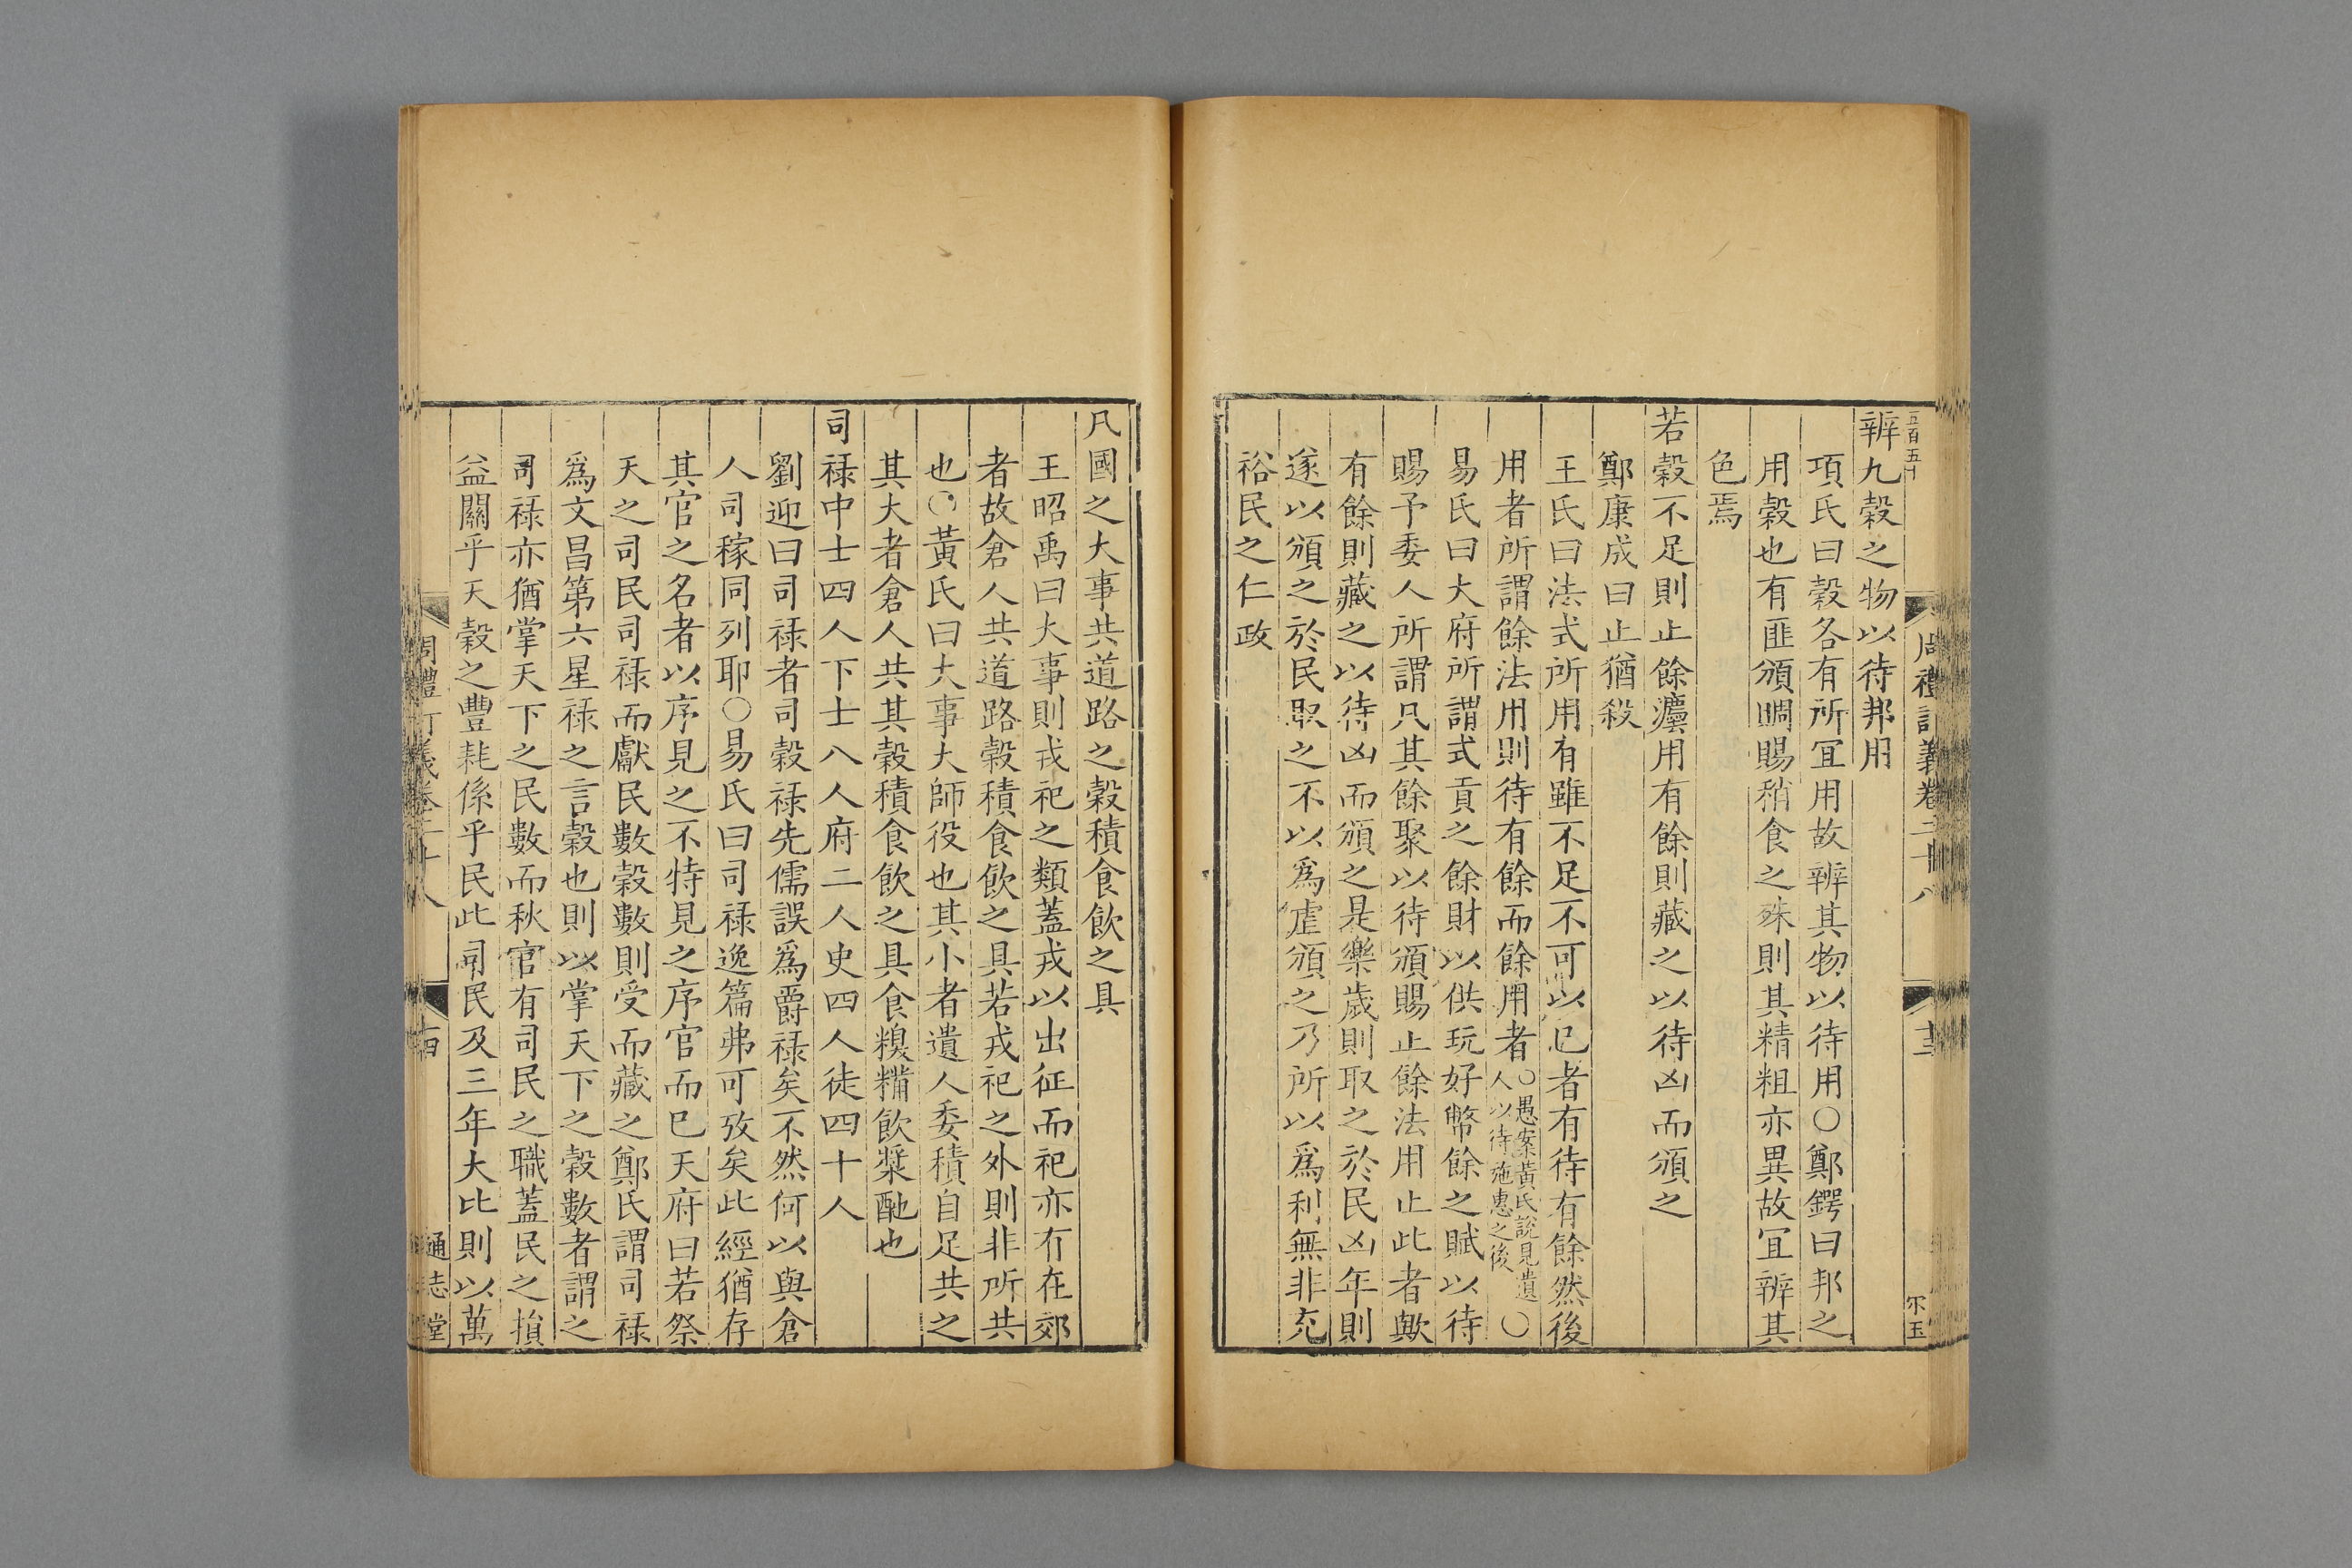 五百五十
周禮訂義卷二十八
十三
尔玉
辨九穀之物以待邦用
項氏曰穀各有所宜用故辨其物以待用○鄭鍔曰邦之
用穀也有匪頒賙賜稍食之殊則其精粗亦異故宜辨其
色焉
若穀不足則止餘灋用有餘則藏之以待凶而頒之
鄭康成曰止猶殺
王氏曰法式所用有雖不足不可以已者有待有餘然後
用者所謂餘法用則待有餘而餘用者○愚案黃氏說見遺人以待施惠之後○
易氏曰大府所謂式貢之餘財以供玩好幣餘之賦以待
賜予委人所謂凡其餘聚以待頒賜止餘法用止此者歟
有餘則藏之以待凶而頒之是樂歲則取之於民凶年則
遂以頒之於民取之不以為虐頒之乃所以為利無非充
裕民之仁政
凡國之大事共道路之穀積食飲之具
王昭禹曰大事則戎祀之類蓋戎以出征而祀亦有在郊
者故倉人共道路穀積食飲之具若戎祀之外則非所共
也○黃氏曰大事大師役也其小者遺人委積自足共之
其大者倉人共其穀積食飲之具食糗糒飲漿酏也
司祿中士四人下士八人府二人史四人徒四十人
劉迎曰司祿者司穀祿先儒誤爲爵祿矣不然何以與倉
人司稼同列耶○易氏曰司祿逸篇弗可攷矣此經猶存
其官之名者以序見之不特見之序官而已天府曰若祭
天之司民司祿而獻民數穀數則受而藏之鄭氏謂司祿
爲文昌第六星祿之言穀也則以掌天下之穀數者謂之
司祿亦猶掌天下之民數而秋官有司民之職蓋民之損
益關乎天穀之豐耗係乎民此司民及三年大比則以萬
周禮訂義卷二十八
十四
通志堂